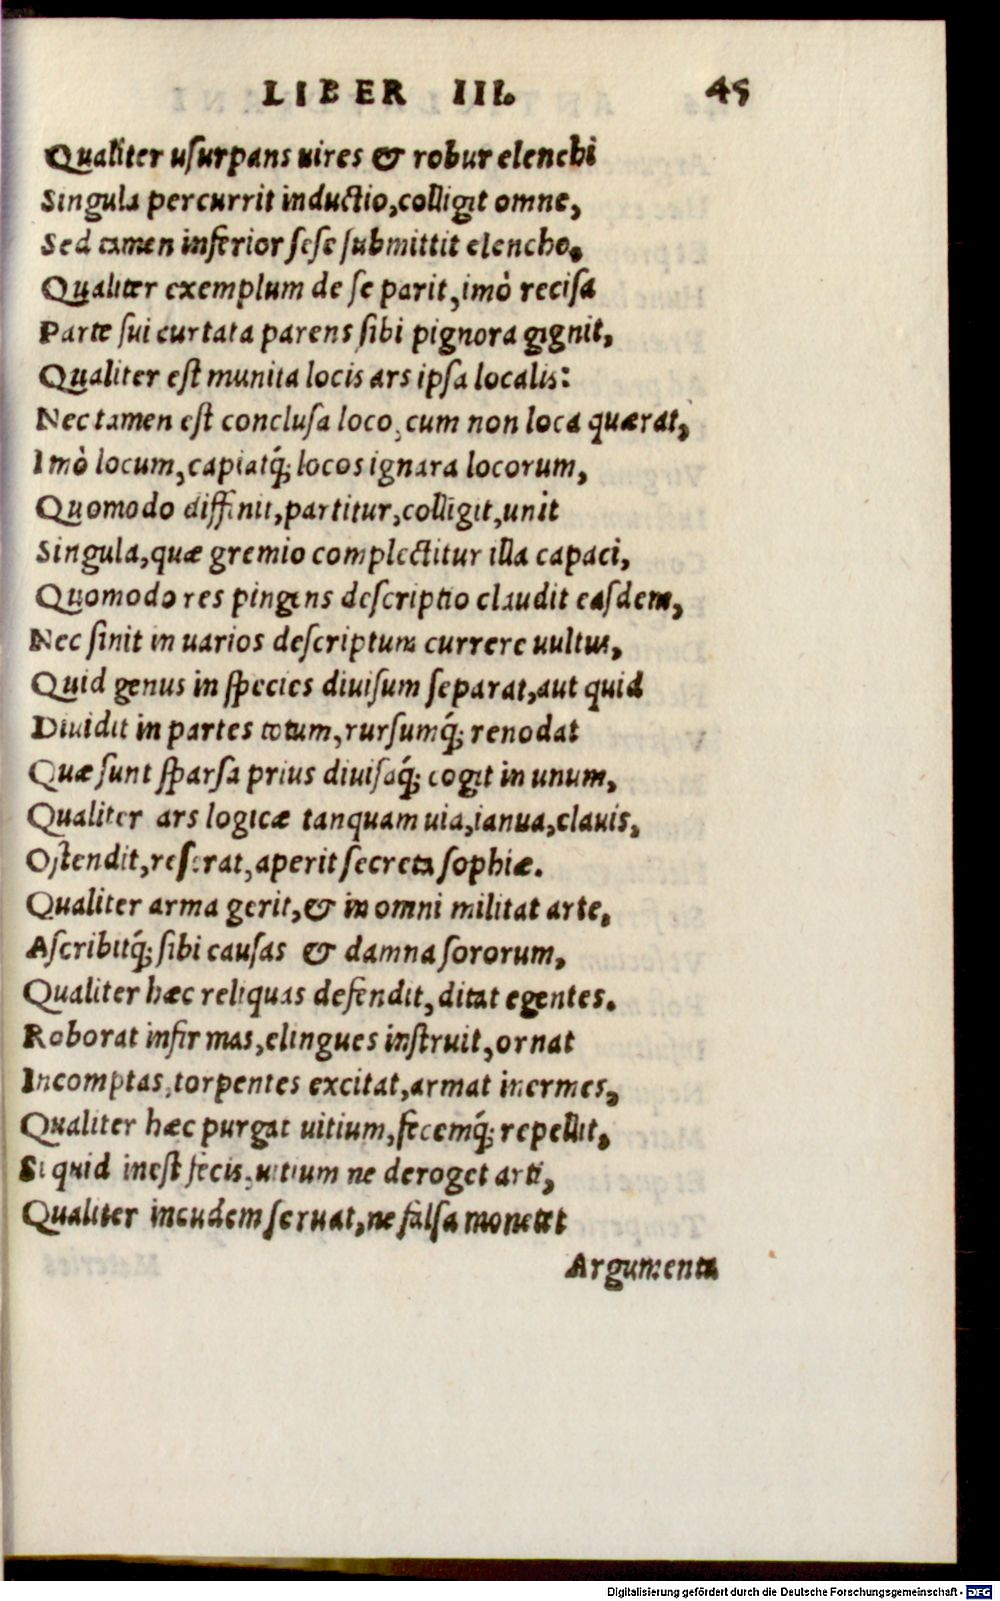 LIBER III. 45
Qualiter uſurpans uires & robur elenchi
Singula percurrit inductio, colligit omne,
Sed tamen inferior ſeſe ſubmittit elencho.
Qualiter exemplum de ſe parit, imò reciſa
Parte ſui curtata parens ſibi pignora gignit,
Qualiter eſt munita locis ars ipſa localis:
Nec tamen eſt concluſa loco, cum non loca quærat,
Imò locum, capiatq́; locos ignara locorum,
Quomodo diffinit, partitur, colligit, unit
Singula, quæ gremio complectitur illa capaci,
Quomodo res pingens deſcriptio claudit eaſdem,
Nec ſinit in uarios deſcriptum currere uultus,
Quid genus in ſpecies diuiſum ſeparat, aut quid
Diuidit in partes totum, rurſumq́; renodat
Quæ ſunt ſparſa prius diuiſaq́; cogit in unum,
Qualiter ars logicæ tanquam uia, ianua, clauis,
Oſtendit, reſerat, aperit ſecreta ſophiæ.
Qualiter arma gerit, & in omni militat arte,
Aſcribitq́; ſibi cauſas & damna ſororum,
Qualiter hæc reliquas defendit, ditat egentes.
Roborat infirmas, elingues inſtruit, ornat
Incomptas, torpentes excitat, armat inermes,
Qualiter hæc purgat uitium, fecemq́; repellit,
Si quid ineſt fecis, uitium ne deroget arti,
Qualiter incudem ſeruat, ne falſa monetet
Argumenta
Digitalisierung gefördert durch die Deutsche Forschungsgemeinschaft - DFG